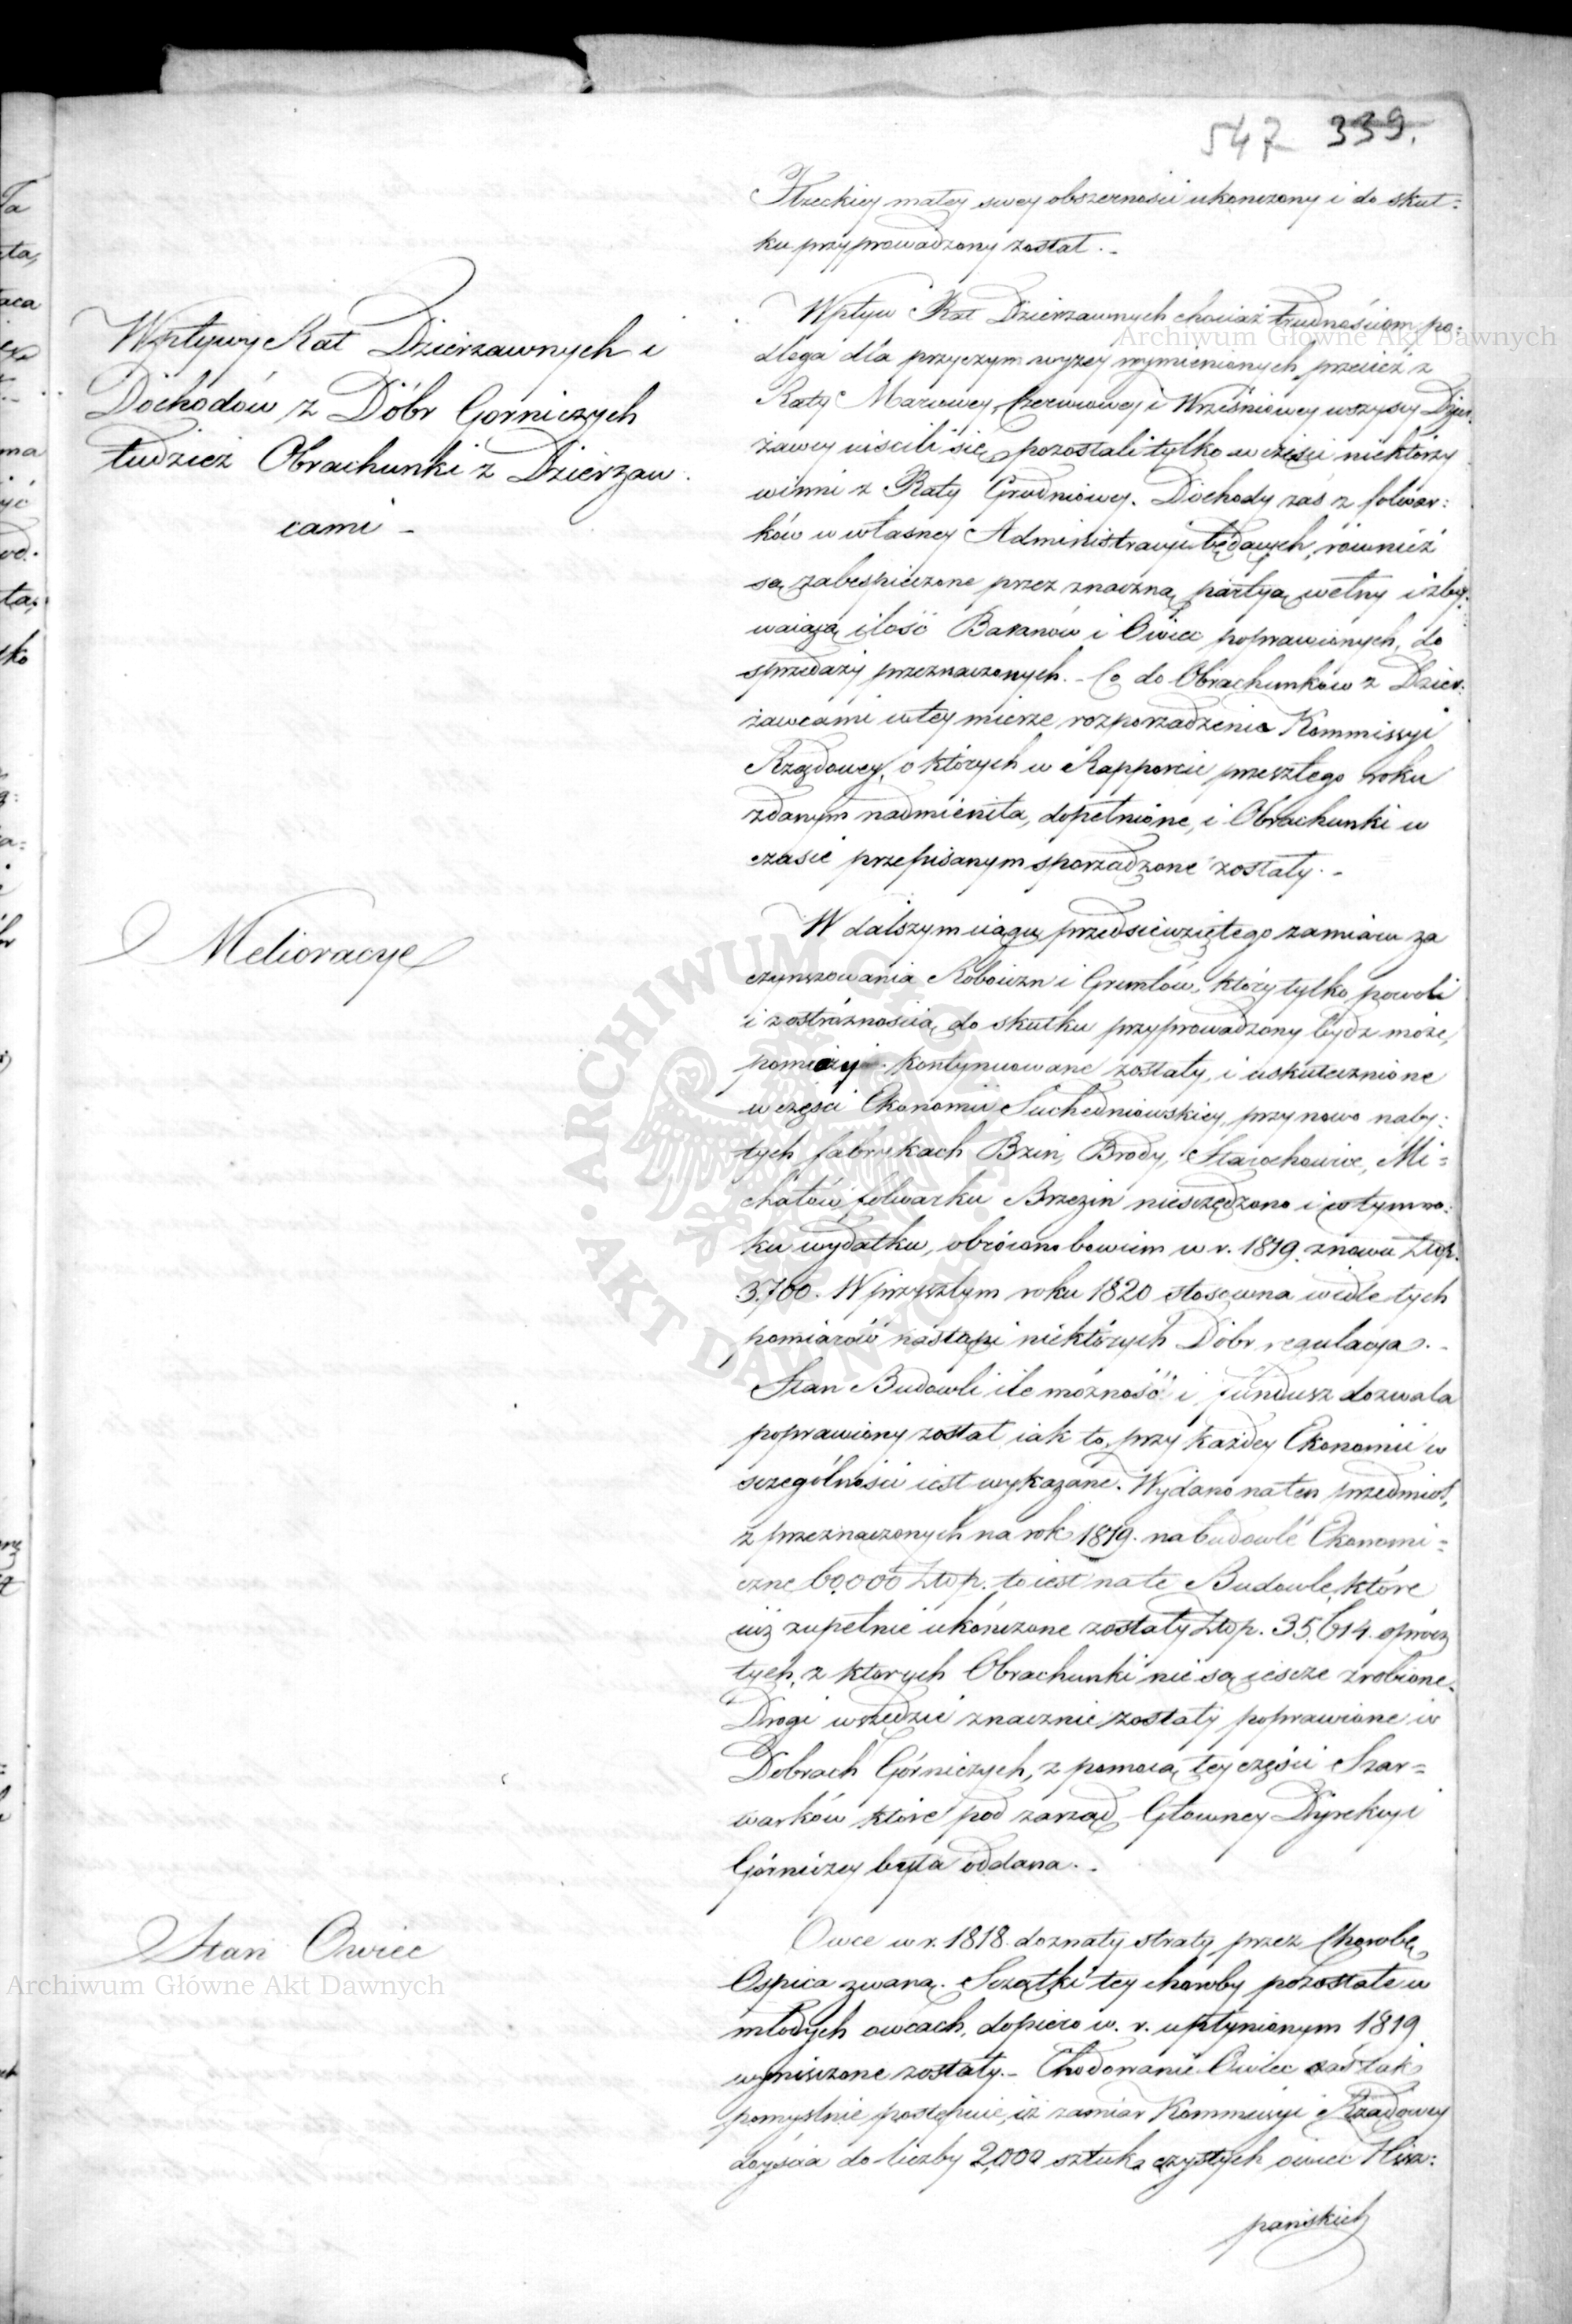 547 339.
Iłżeckiey małey swey obszerności ukończony i do skut=
ku przyprowadzony został. -
Wpływy Rat Dzierzawnych i
Dochodów z Dóbr Gorniczych
tudzież Obrachunki z Dzierzaw
cami -
Wpływ Rat Dzierzawnych chociaż trudnościom po=
dlega dla przyczyn wyzey wymienionych, przecież z
Raty Marcowey, Czerwcowey i Wrześniowey wszyscy Dzier=
żawcy uiścili się, pozostali tylko w części niektórzy
winni z Raty Grudniowey. Dochody zaś z folwar=
ków w własney Administracyi będących, również
są zabespieczone przez znaczną partyą wełny i zby=
waiącą ilość Baranów i Owiec poprawionych, do
sprzedaży przeznaczonych. - Co do Obrachunków z Dzier=
żawcami w tey mierze rozporządzenia Kommissyi
Rządowey, o których w Rapporcie przeszłego roku
zdanym nadmieniła, dopełnione, i Obrachunki w
czasie przepisanym sporządzone zostały. -
Melioracye
W dalszym ciągu przedsiewziętego zamiaru za
czynszowania Robocizn i Gruntów, który tylko powoli
i z ostróżnością do skutku przyprowadzony bydz może,
pomiary kontynuowane zostały, i uskutecznione
w części Ekonomii Suchedniowskiey, przy nowo naby=
tych fabrykach Bzin, Brody, Starachowice, Mi=
chałów, folwarku Brzezin nieszczędzono i w tym ro=
ku wydatku, obrócono bowiem w r. 1819. znowu Złtp.
3,700. W przyszłym roku 1820 stosowna wedle tych
pomiarów nastąpi niektórych Dóbr regulacya. -
Stan Budowli ile możność i fundusz dozwala
poprawiony został iak to, przy każdey Ekonomii w
szczególności iest wykazane. Wydano na ten przedmiot,
z przeznaczonych na rok 1819. na budowle Ekonomi=
czne 60,000 Złtp. to iest na te Budowle, które
iuż zupełnie ukończone zostały Złtp. 35,614. oprócz
tych, z ktorych Obrachunki nie są ieszcze zrobione.
Drogi wszędzie znacznie zostały poprawione w
Dobrach Górniczych, z pomocą tey części Szar=
warków które pod zarząd Głowney Dyrekcyi
Górniczey była oddana. -
Stan Owiec
Owce w r. 1818. doznały straty przez Chorobę
Ospica zwaną. Szczątki tey choroby pozostałe w
młodych owcach, dopiero w. r. upłynionym 1819
wyniszczone zostały. - Chodowanie Owiec zaś tak
pomyslnie postępuie, iż zamiar Kommissyi Rządowey
doyścia do liczby 2,000 sztuk czystych owiec Hisz=
pańskich
Archiwum Główne Akt Dawnych
Archiwum Główne Akt Dawnych
ARCHIWUM GŁÓWNE AKT DAWNYCH